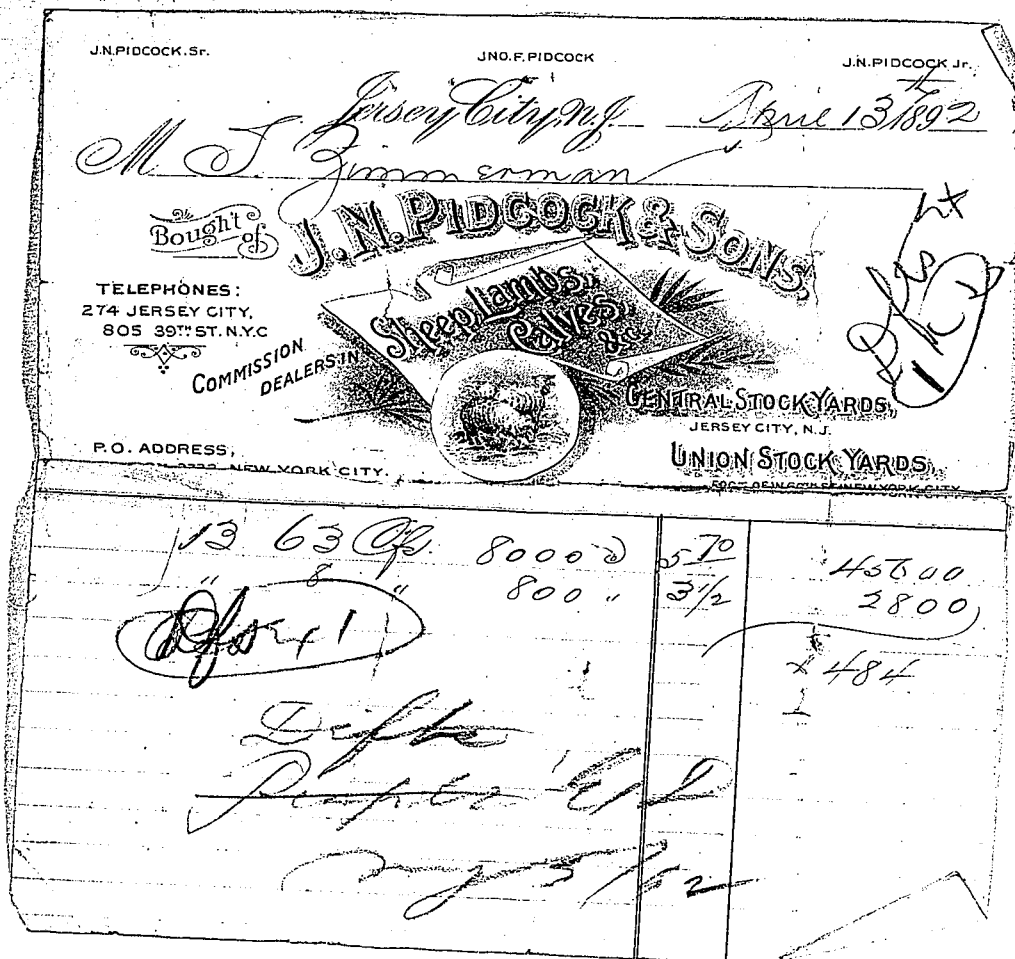 J.N.PIDCOCK.Sr. JNO.F.PIDCOCK J.N.PIDCOCK Jr.
Jersey City, N.J. April 13th 1892
M J. Zimmerman
Bought of J.N. PIDCOCK & SONS,
TELEPHONES:
274 JERSEY CITY,
805 39TH ST. N.Y.C
COMMISSION
DEALERS IN
Sheep, Lambs,
Calves,
&c.
CENTRAL STOCK YARDS,
JERSEY CITY, N.J.
UNION STOCK YARDS,
P.O. ADDRESS,
NEW YORK CITY.
NEW YORK CITY
13 63 Cfs. 8000 @ 5 70 456 00
" 8 " 800 " 3 1/2 28 00
484
Defts